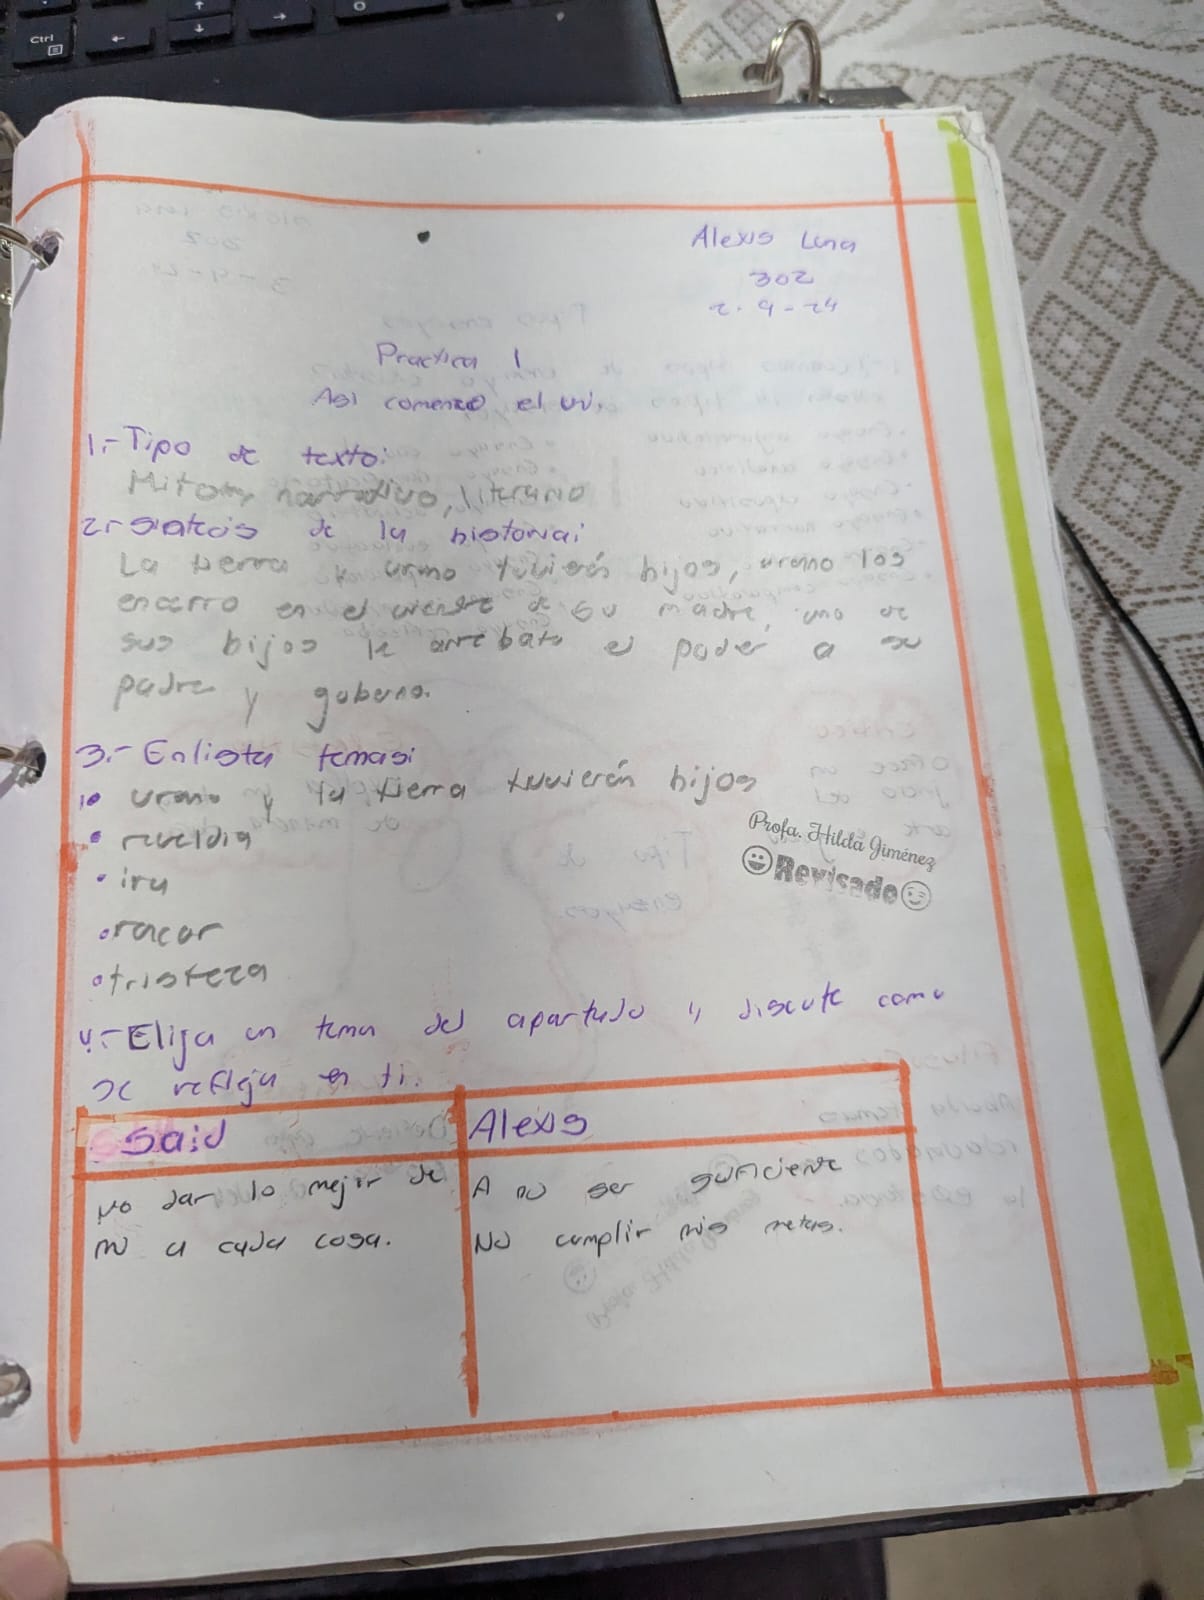 Ctrl
Alexis Luna
302
2-9-24
Practica 1
Asi comenzo el uni.
1.- Tipo de texto:
Mito, narrativo, literario
2.- sintesis de la historia:
La tierra y urano tuvierón hijos, urano los
encerro en el vientre de su madre, uno de
sus hijos le arrebato el poder a su
padre y goberno.
3.- Enlista temas:
• urano y la tierra tuvierón hijos
• reveldia
• ira
• racor
• tristeza
Profa. Hilda Giménez
Revisado
4.- Elija un tema del apartado y discute como
se refleja en ti.
Said
Alexis
No dar lo mejor de
mi a cada cosa.
A no ser suficiente
No cumplir mis metas.